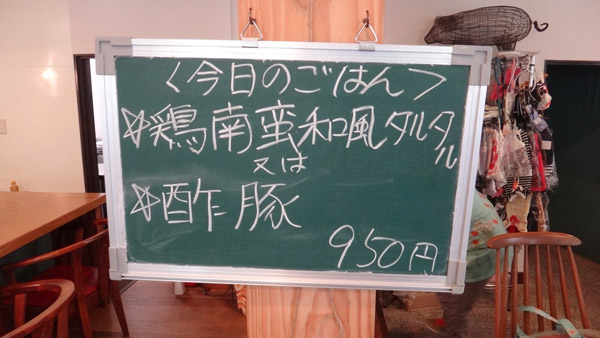 〈今日のごはん〉
☆鶏南蛮和風タルタル
又は
☆酢豚
950円